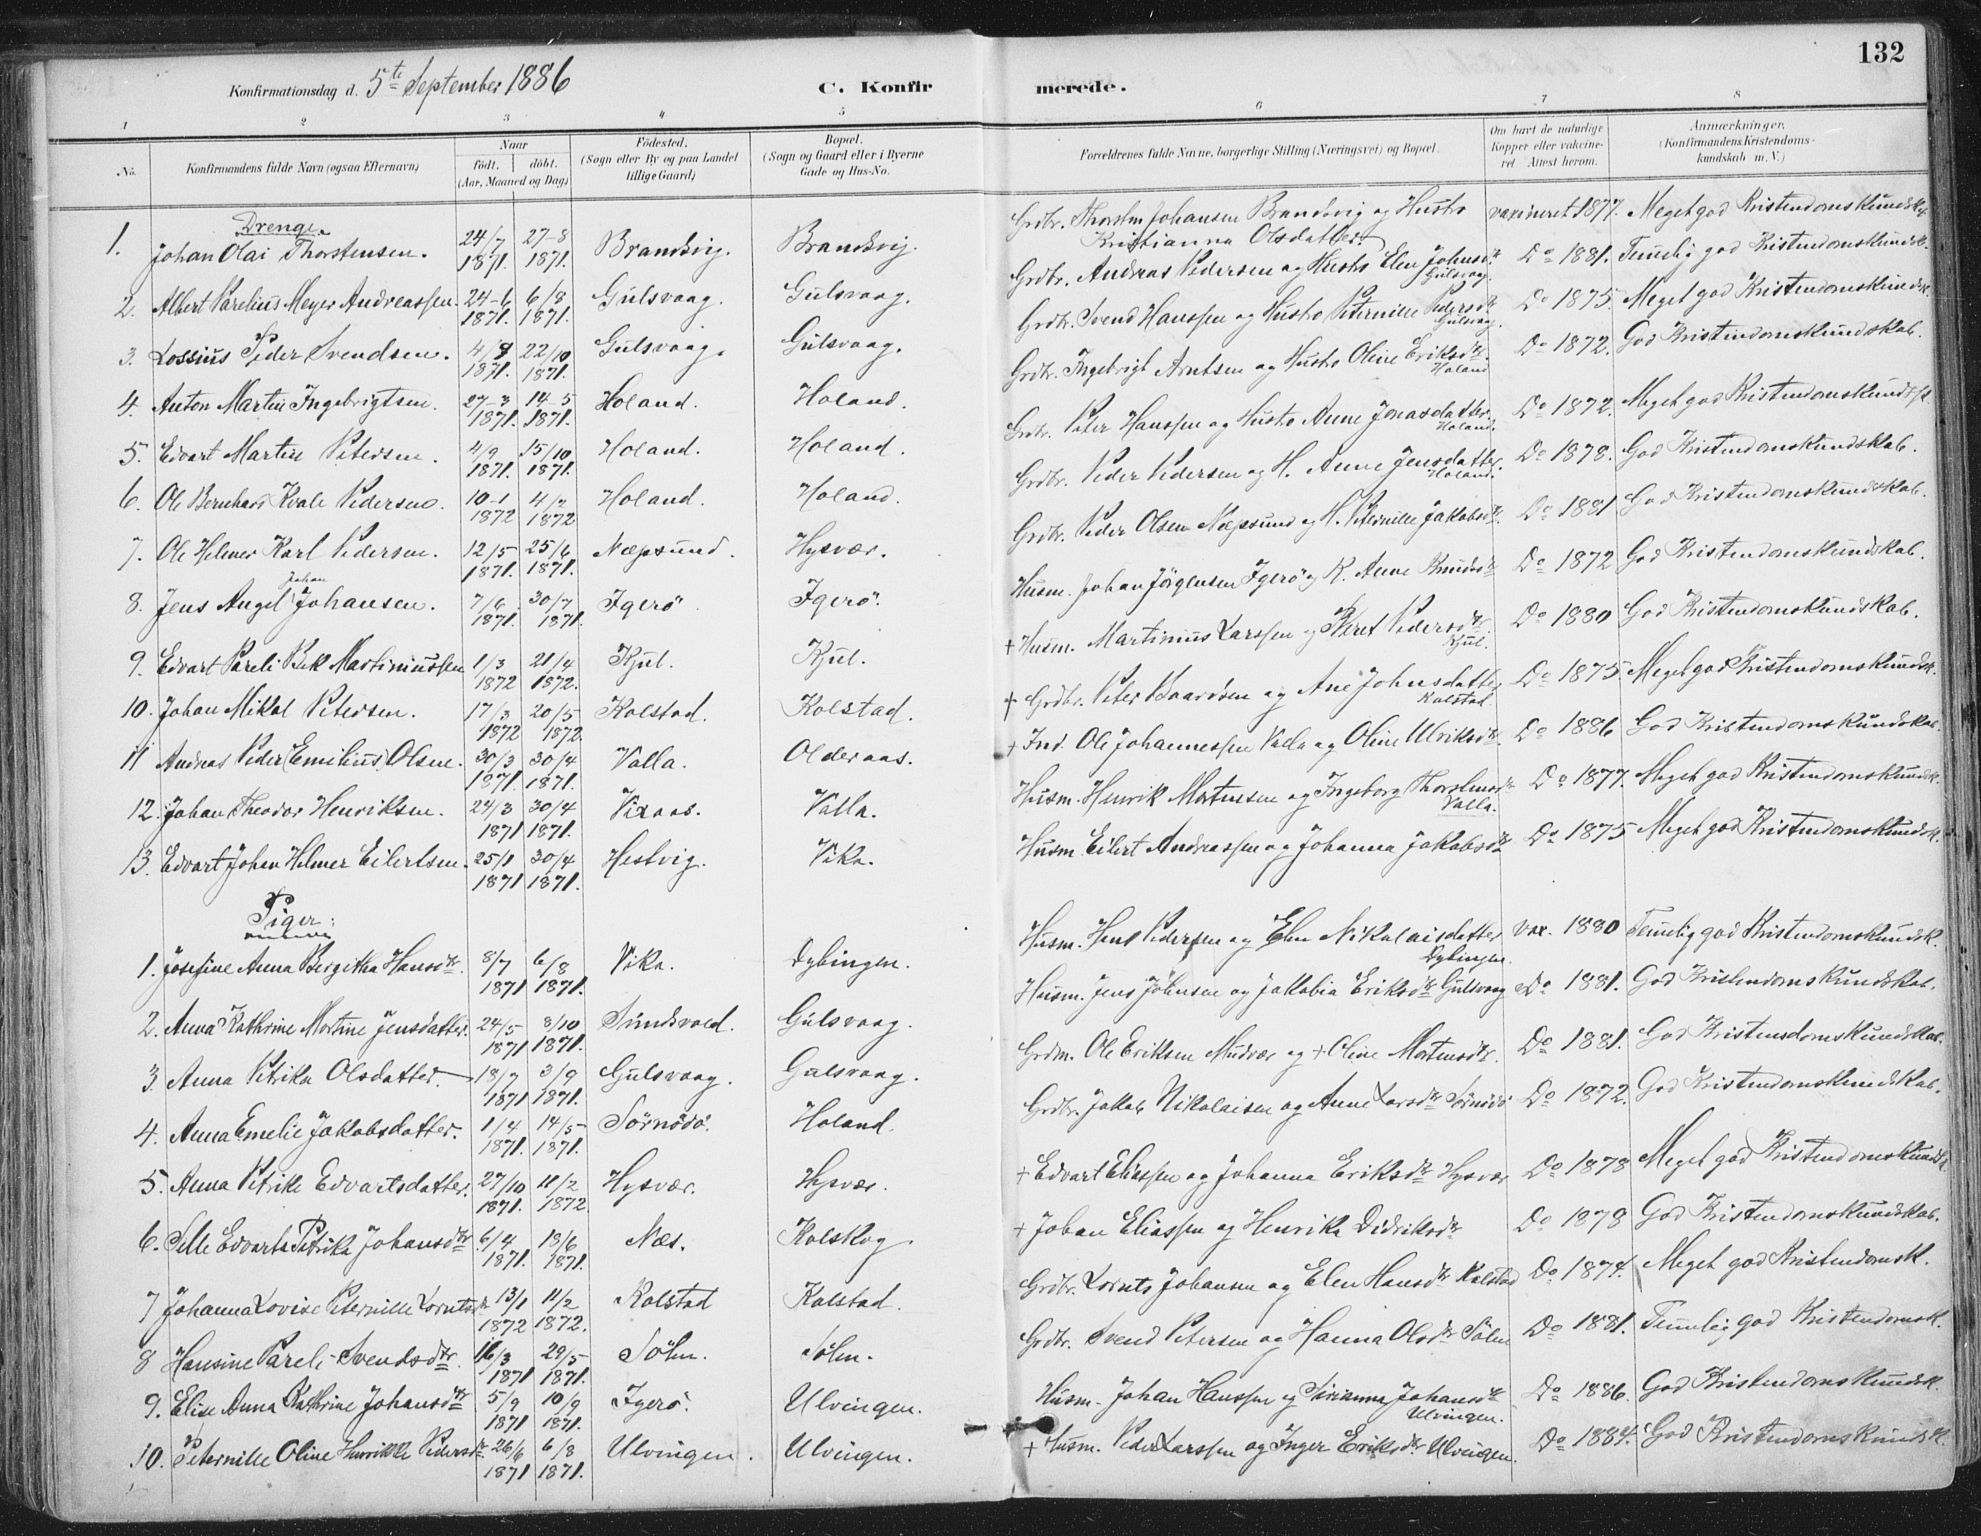 132
Konfirmationsdag d. 5te September 1886
C. Konfirmerede.
1 2 3 4 5 6 7 8
No. Konfirmandens fulde Navn (ogsaa Efternavn) Naar født. døbt. (Aar, Maaned og Dag) Födested. (Sogn eller By og paa Landet tillige Gaard) Bopæl. (Sogn og Gaard eller i Byerne Gade og Hus-No. Forældrenes fulde Navne, borgerlige Stilling (Næringsvei) og Bopæl. Om havt de naturlige Kopper eller vakcineret Attest herom. Anmærkninger. (Konfirmandens Kristendomskundskab m. V.)
Drenge
1. Johan Olai Thorstensen. 24/7 1871. 27-8 1871. Brandsvig. Brandsvig. Grdbr. Johansen Brandsvig og Hustro Kristianna Olsdatter. vaxineret 1877. Meget god Kristendomskundskab
2. Albert Parelius Meyer Andreassen. 24-6 1871. 6/8 1871. Gulsvaag. Gulsvaag. Grdbr. Andreas Pedersen og Hustro Elen Johnsdtr Gulsvaag. Do 1881. Temmelig god Kristendomskundsk.
3. Lossius Peder Svendsen. 4/9 1871. 22/10 1871. Gulsvaag. Gulsvaag. Grdbr. Svend Hanssen og Hustro Peternille Pedersdtr Gulsvaag. Do 1875. Meget god Kristendomskundsk.
4. Anton Martin Ingebrigtsen. 27-3 1871. 14-5 1871. Holand. Holand. Grdbr. Ingebrigt Arntsen og Hustro Oline Eriksdtr. Holand Do 1872. God Kristendomskundskab.
5. Edvart Martin Petersen. 4/9 1871. 15/10 1871. Holand. Holand. Grdbr. Peter Hanssen og Hustro Anne Jonasdatter Holand. Do 1872. Meget god Kristendomskundsk.
6. Ole Bernhard Kvale Pedersen. 10-1 1872 4/2 1872 Holand. Holand. Grdbr. Peder Pedersen og H. Anne Jensdatter. Holand. Do 1878. God Kristendomskundskab.
7. Ole Helmer Karl Pedersen. 12/5 1871. 25/6 1871. Næpsund. Hysvær. Grdbr. Peder Olsen Næpsund og H. Peternille Jakobsdtr. Do 1881 God Kristendomskundskab.
8. Jens Angel Johan Johansen. 7/6 1871. 30/7 1871. Igerö Igerö. Husm. Johan Jörgensen Igerö og K. Anne Knudsdtr Do 1872 God Kristendomskundskab.
9. Edvart Pareli Bek Martiniussen 1/3 1872 21/4 1872. Kjul. Kjul. + Husm. Martinius Larssen og Beret Pedersdtr. Kjul. Do 1880 God Kristendomskundskab.
10. Johan Mikal Petersen. 17/3 1872 20/5 1872. Kolstad. Kolstad. + Grdbr. Peter Baardsen og Ane Johnsdatter Kolstad Do 1875 Meget god Kristendomskundsk.
11 Andreas Peder (Emilius) Olsen. 30/3 1871. 30/4 1871. Valla. Olderaas. + Ind. Ole Johannessen Valla og Oline Ulriksdtr. Do 1886 God Kristendomskundskab.
12. Johan Theodor Henriksen. 24/3 1871 30/4 1871. Vixaas. Valla. Husm. Henrik Mortensen og Ingeborg Valla. Do 1877. Meget god Kristendomskundsk.
13. Edvart Johan Helmer Eilertsen. 25/1 1871 30/4 1871. Hestvig. Vika. Husm. Eilert Andreassen og Johanna Jakobsdtr Do 1875 Meget god Kristendomskundsk.
Piger:
1. Josefine Anna Bergitha Hansdtr. 8/7 1871 6/8 1871. Vika. Dybingen. Husm. Hans Pedersen og Elen Nikolaisdatter Dybingen. vax. 1880 Temmelig god Kristendomskundsk.
2. Anna Kathrine Martine Jensdatter. 24/5 1871 8/10 1871. Sundsvold. Gulsvaag. Husm. Jens Johnsen og Jakobia Eriksdtr Gulsvaag Do 1881. God Kristendomskundskab.
3. Anna Petrika Olsdatter. 18/7 1871 3/9 1871. Gulsvaag. Gulsvaag. Grdm. Ole Eriksen Mudvær og + Oline Mortensdtr. Do 1881. God Kristendomskundskab.
4. Anna Emelie Jakobsdatter. 1/4 1871. 14/5 1871. Sörnösö. Holand. Grdbr. Jakob Nikolaisen og Anne Larsdtr Sörnösö Do 1872. God Kristendomskundskab.
5. Anna Petrike Edvartsdatter. 27/10 1871. 11/2 1872 Hysvær. Hysvær. + Edvart Eliassen og Johanna Eriksdtr Hysvær Do 1878 Meget god Kristendomskundsk
6. Edvarta Petrika Johansdtr. 6/4 1871. 18/6 1871. Næs. Kolskog. + Johan Eliassen og Henrika Didriksdtr Do 1878 God Kristendomskundskab.
7 Johanna Lovise Peternille Lorntsdtr 13/1 1872 11/2 1872. Kolstad Kolstad. Grdbr. Lornts Johansen og Elen Hansdtr Kolstad Do 1874. Meget god Kristendomsk.
8 Hansine Pareli Svendsdtr. 16/3 1871 29/5 1871. Sölen. Sölen. Grdbr. Svend Petersen og Hanna Olsdtr Sölen Do 1881. Temmelig god Kristendomsk.
9. Elise Anna Kathrine Johansdtr 5/9 1871 10/9 1871. Igerö. Ulvingen. Husm. Johan Hanssen og Johansdtr Ulvingen. Do 1886. God Kristendomskundsk.
10. Peternille Oline Henrikke Pedersdtr 26/6 1871 6/8 1871. Ulvingen. Ulvingen. + Husm. Peder Larssen og Inger Eriksdtr Ulvingen. Do 1884. God Kristendomskundsk.